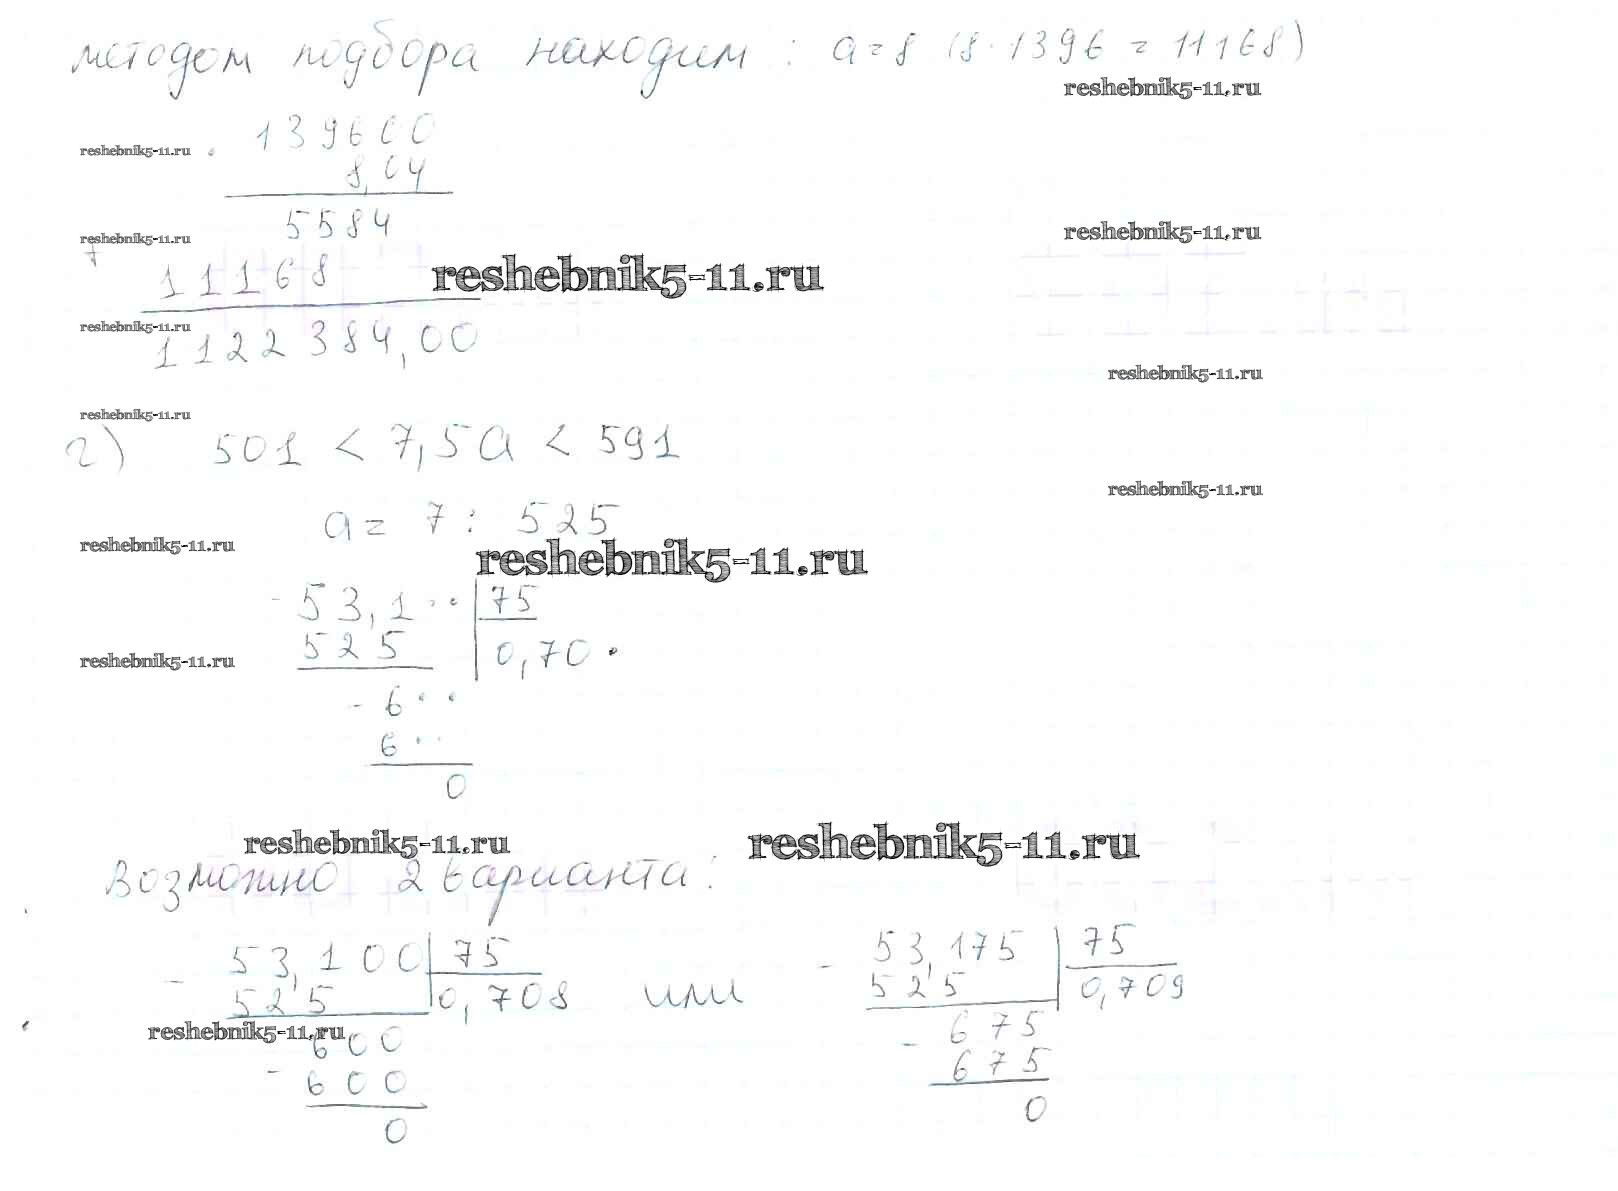 методом подбора находим : a = 8 (8 · 1396 = 11168)
reshebnik5-11.ru
139600
reshebnik5-11.ru ·
8,04
5584
reshebnik5-11.ru
reshebnik5-11.ru
+
11168
reshebnik5-11.ru
reshebnik5-11.ru
1122384,00
reshebnik5-11.ru
reshebnik5-11.ru
г) 501 < 7,5a < 591
reshebnik5-11.ru
a = 7 : 525
reshebnik5-11.ru
reshebnik5-11.ru
- 53,1·· | 75
525 | 0,70·
reshebnik5-11.ru
- 6··
6··
0
reshebnik5-11.ru
reshebnik5-11.ru
Возможно 2 варианта :
- 53,100 | 75
525 | 0,708
или
- 53,175 | 75
525 | 0,709
reshebnik5-11.ru
600
- 600
0
675
- 675
0